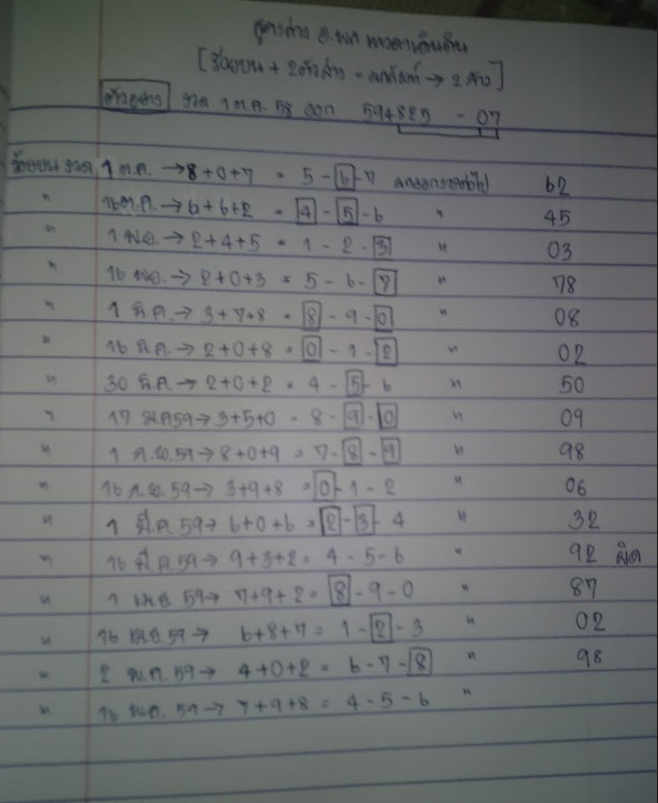 สูตรล่าง อ.พก เทวดาเดินดิน
[ร้อยบน + 2ตัวล่าง = ผลลัพท์ → 2 ล่าง]
ตัวอย่าง งวด 1 ต.ค. 58 ออก 594825 - 07
ร้อยบน งวด 1 ต.ค. → 8+0+7 = 5 - 6 - 7 62
" 16 ต.ค. → 6+6+2 = 4 - 5 - 6 " 45
" 1 พ.ย. → 2+4+5 = 1 - 2 - 3 " 03
" 16 พ.ย. → 2+0+3 = 5 - 6 - 7 " 78
" 1 ธ.ค. → 3+7+8 = 8 - 9 - 0 " 08
" 16 ธ.ค. → 2+0+8 = 0 - 1 - 2 " 02
" 30 ธ.ค. → 2+0+2 = 4 - 5 - 6 " 50
" 17 ม.ค 59 → 3+5+0 = 8 - 9 - 0 " 09
" 1 ก.พ. 59 → 8+0+9 = 7 - 8 - 9 " 98
" 16 ก.พ. 59 → 3+9+8 = 0 - 1 - 2 " 06
" 1 มี.ค. 59 → 6+0+6 = 2 - 3 - 4 " 32
" 16 มี.ค. 59 → 9+3+2 = 4 - 5 - 6 " 92 ผิด
" 1 เมย. 59 → 7+9+2 = 8 - 9 - 0 " 87
" 16 เมย. 59 → 6+8+7 = 1 - 2 - 3 " 02
" 2 พ.ค. 59 → 4+0+2 = 6 - 7 - 8 " 98
" 16 พ.ค. 59 → 7+9+8 = 4 - 5 - 6 "